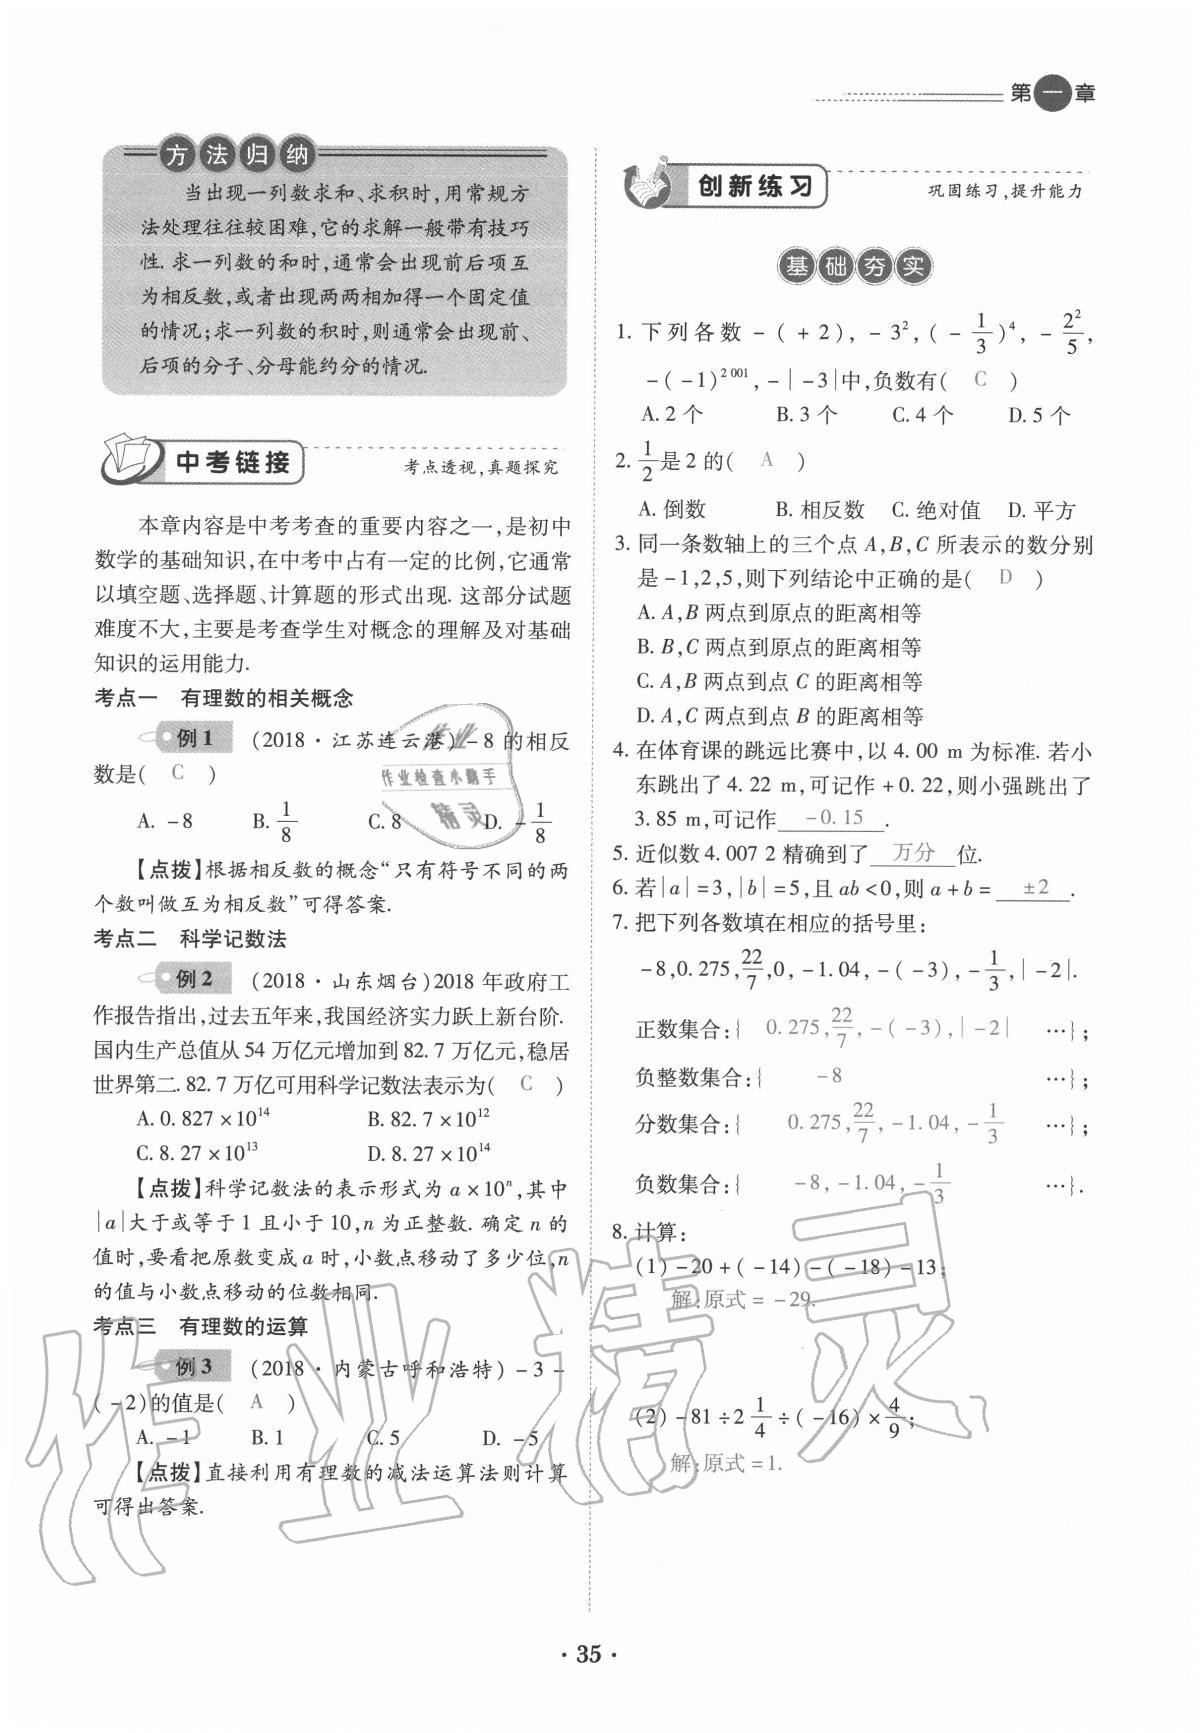 第一章
方法归纳
当出现一列数求和、求积时,用常规方
法处理往往较困难,它的求解一般带有技巧
性.求一列数的和时,通常会出现前后项互
为相反数,或者出现两两相加得一个固定值
的情况;求一列数的积时,则通常会出现前、
后项的分子、分母能约分的情况.
中考链接
考点透视,真题探究
本章内容是中考考查的重要内容之一,是初中
数学的基础知识,在中考中占有一定的比例,它通常
以填空题、选择题、计算题的形式出现. 这部分试题
难度不大,主要是考查学生对概念的理解及对基础
知识的运用能力.
考点一 有理数的相关概念
例1 (2018·江苏连云港)-8 的相反
数是( C )
A. -8 B. 1/8 C. 8 D. -1/8
【点拨】根据相反数的概念“只有符号不同的两
个数叫做互为相反数”可得答案.
考点二 科学记数法
例2 (2018·山东烟台)2018 年政府工
作报告指出,过去五年来,我国经济实力跃上新台阶.
国内生产总值从 54 万亿元增加到 82.7 万亿元,稳居
世界第二. 82.7 万亿可用科学记数法表示为( C )
A. 0.827×10¹⁴ B. 82.7×10¹²
C. 8.27×10¹³ D. 8.27×10¹⁴
【点拨】科学记数法的表示形式为 a×10ⁿ,其中
|a|大于或等于 1 且小于 10,n 为正整数. 确定 n 的
值时,要看把原数变成 a 时,小数点移动了多少位,n
的值与小数点移动的位数相同.
考点三 有理数的运算
例3 (2018·内蒙古呼和浩特) -3-
(-2)的值是( A )
A. -1 B. 1 C. 5 D. -5
【点拨】直接利用有理数的减法运算法则计算
可得出答案.
创新练习
巩固练习,提升能力
基础夯实
1. 下列各数 -(+2), -3², (-1/3)⁴, -2²/5,
-(-1)²⁰⁰¹, -|-3|中,负数有( C )
A. 2 个 B. 3 个 C. 4 个 D. 5 个
2. 1/2是 2 的( A )
A. 倒数 B. 相反数 C. 绝对值 D. 平方
3. 同一条数轴上的三个点 A,B,C 所表示的数分别
是 -1,2,5,则下列结论中正确的是( D )
A. A,B 两点到原点的距离相等
B. B,C 两点到原点的距离相等
C. A,B 两点到点 C 的距离相等
D. A,C 两点到点 B 的距离相等
4. 在体育课的跳远比赛中,以 4.00 m 为标准. 若小
东跳出了 4.22 m,可记作 +0.22,则小强跳出了
3.85 m,可记作 -0.15 .
5. 近似数 4.007 2 精确到了 万分 位.
6. 若|a|=3,|b|=5,且 ab<0,则 a+b= ±2 .
7. 把下列各数填在相应的括号里:
-8,0.275,22/7,0,-1.04,-(-3),-1/3,|-2|.
正数集合:{ 0.275,22/7,-(-3),|-2| …};
负整数集合:{ -8 …};
分数集合:{ 0.275,22/7,-1.04,-1/3 …};
负数集合:{ -8,-1.04,-1/3 …}.
8. 计算:
(1)-20+(-14)-(-18)-13;
解:原式=-29.
(2)-81÷2 1/4÷(-16)×4/9;
解:原式=1.
·35·
作业
作业检查小助手
精灵
作业精灵